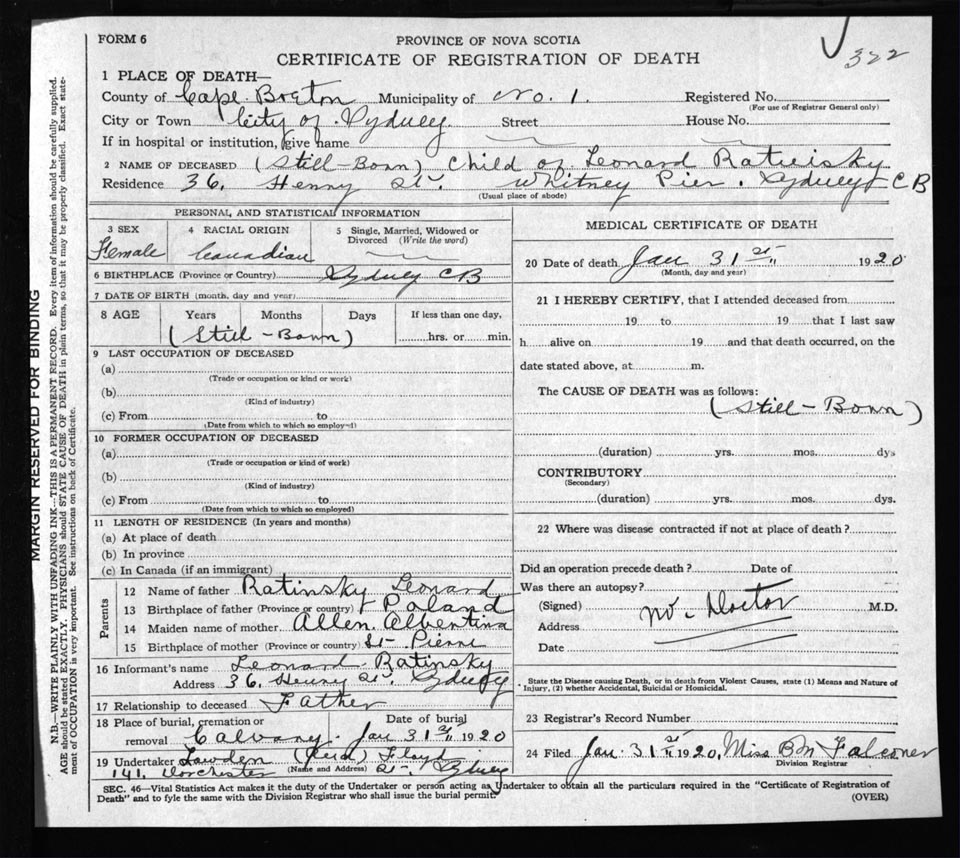 FORM 6
PROVINCE OF NOVA SCOTIA
CERTIFICATE OF REGISTRATION OF DEATH
322
1 PLACE OF DEATH—
County of Cape Breton Municipality of No. 1. Registered No.
(For use of Registrar General only)
City or Town City of Sydney Street House No.
If in hospital or institution, give name
2 NAME OF DECEASED (Still-Born) Child of Leonard Ratinsky
Residence 36, Henry St. Whitney Pier. Sydney C B
(Usual place of abode)
PERSONAL AND STATISTICAL INFORMATION
3 SEX 4 RACIAL ORIGIN 5 Single, Married, Widowed or Divorced (Write the word)
Female Canadian
6 BIRTHPLACE (Province or Country) Sydney CB
7 DATE OF BIRTH (month, day and year)
8 AGE Years Months Days If less than one day,
hrs. or min.
(Still-Born)
9 LAST OCCUPATION OF DECEASED
(a)
(Trade or occupation or kind or work)
(b)
(Kind of industry)
(c) From to
(Date from which to which so employed)
10 FORMER OCCUPATION OF DECEASED
(a)
(Trade or occupation or kind of work)
(b)
(Kind of industry)
(c) From to
(Date from which to which so employed)
11 LENGTH OF RESIDENCE (In years and months)
(a) At place of death
(b) In province
(c) In Canada (if an immigrant)
Parents
12 Name of father Ratinsky Leonard
13 Birthplace of father (Province or country) Poland
14 Maiden name of mother Allen. Albertina
15 Birthplace of mother (Province or country) St- Pierre
16 Informant's name Leonard Ratinsky
Address 36, Henry St, Sydney
17 Relationship to deceased Father
18 Place of burial, cremation or removal Calvary. Date of burial Jan 31 st 1920
19 Undertaker Lowden Floyd
(Name and Address)
141, Dorchester St. Sydney
MEDICAL CERTIFICATE OF DEATH
20 Date of death Jan 31 st 1920
(Month, day and year)
21 I HEREBY CERTIFY, that I attended deceased from
19 to 19 that I last saw
h alive on 19 and that death occurred, on the
date stated above, at m.
The CAUSE OF DEATH was as follows:
(Still-Born)
(duration) yrs. mos. dys
CONTRIBUTORY
(Secondary)
(duration) yrs. mos. dys.
22 Where was disease contracted if not at place of death?
Did an operation precede death? Date of
Was there an autopsy?
(Signed) No Doctor M.D.
Address
Date
State the Disease causing Death, or in death from Violent Causes, state (1) Means and Nature of
Injury, (2) whether Accidental, Suicidal or Homicidal.
23 Registrar's Record Number
24 Filed Jan. 31 st 1920, Miss B M Falconer
Division Registrar
SEC. 46—Vital Statistics Act makes it the duty of the Undertaker or person acting as Undertaker to obtain all the particulars required in the "Certificate of Registration of
Death" and to fyle the same with the Division Registrar who shall issue the burial permit.
(OVER)
MARGIN RESERVED FOR BINDING
N.B.—WRITE PLAINLY WITH UNFADING INK—THIS IS A PERMANENT RECORD. Every item of information should be carefully supplied.
AGE should be stated EXACTLY. PHYSICIANS should STATE CAUSE OF DEATH in plain terms, so that it may be properly classified. Exact state-
ment of OCCUPATION is very important. See instructions on back of Certificate.